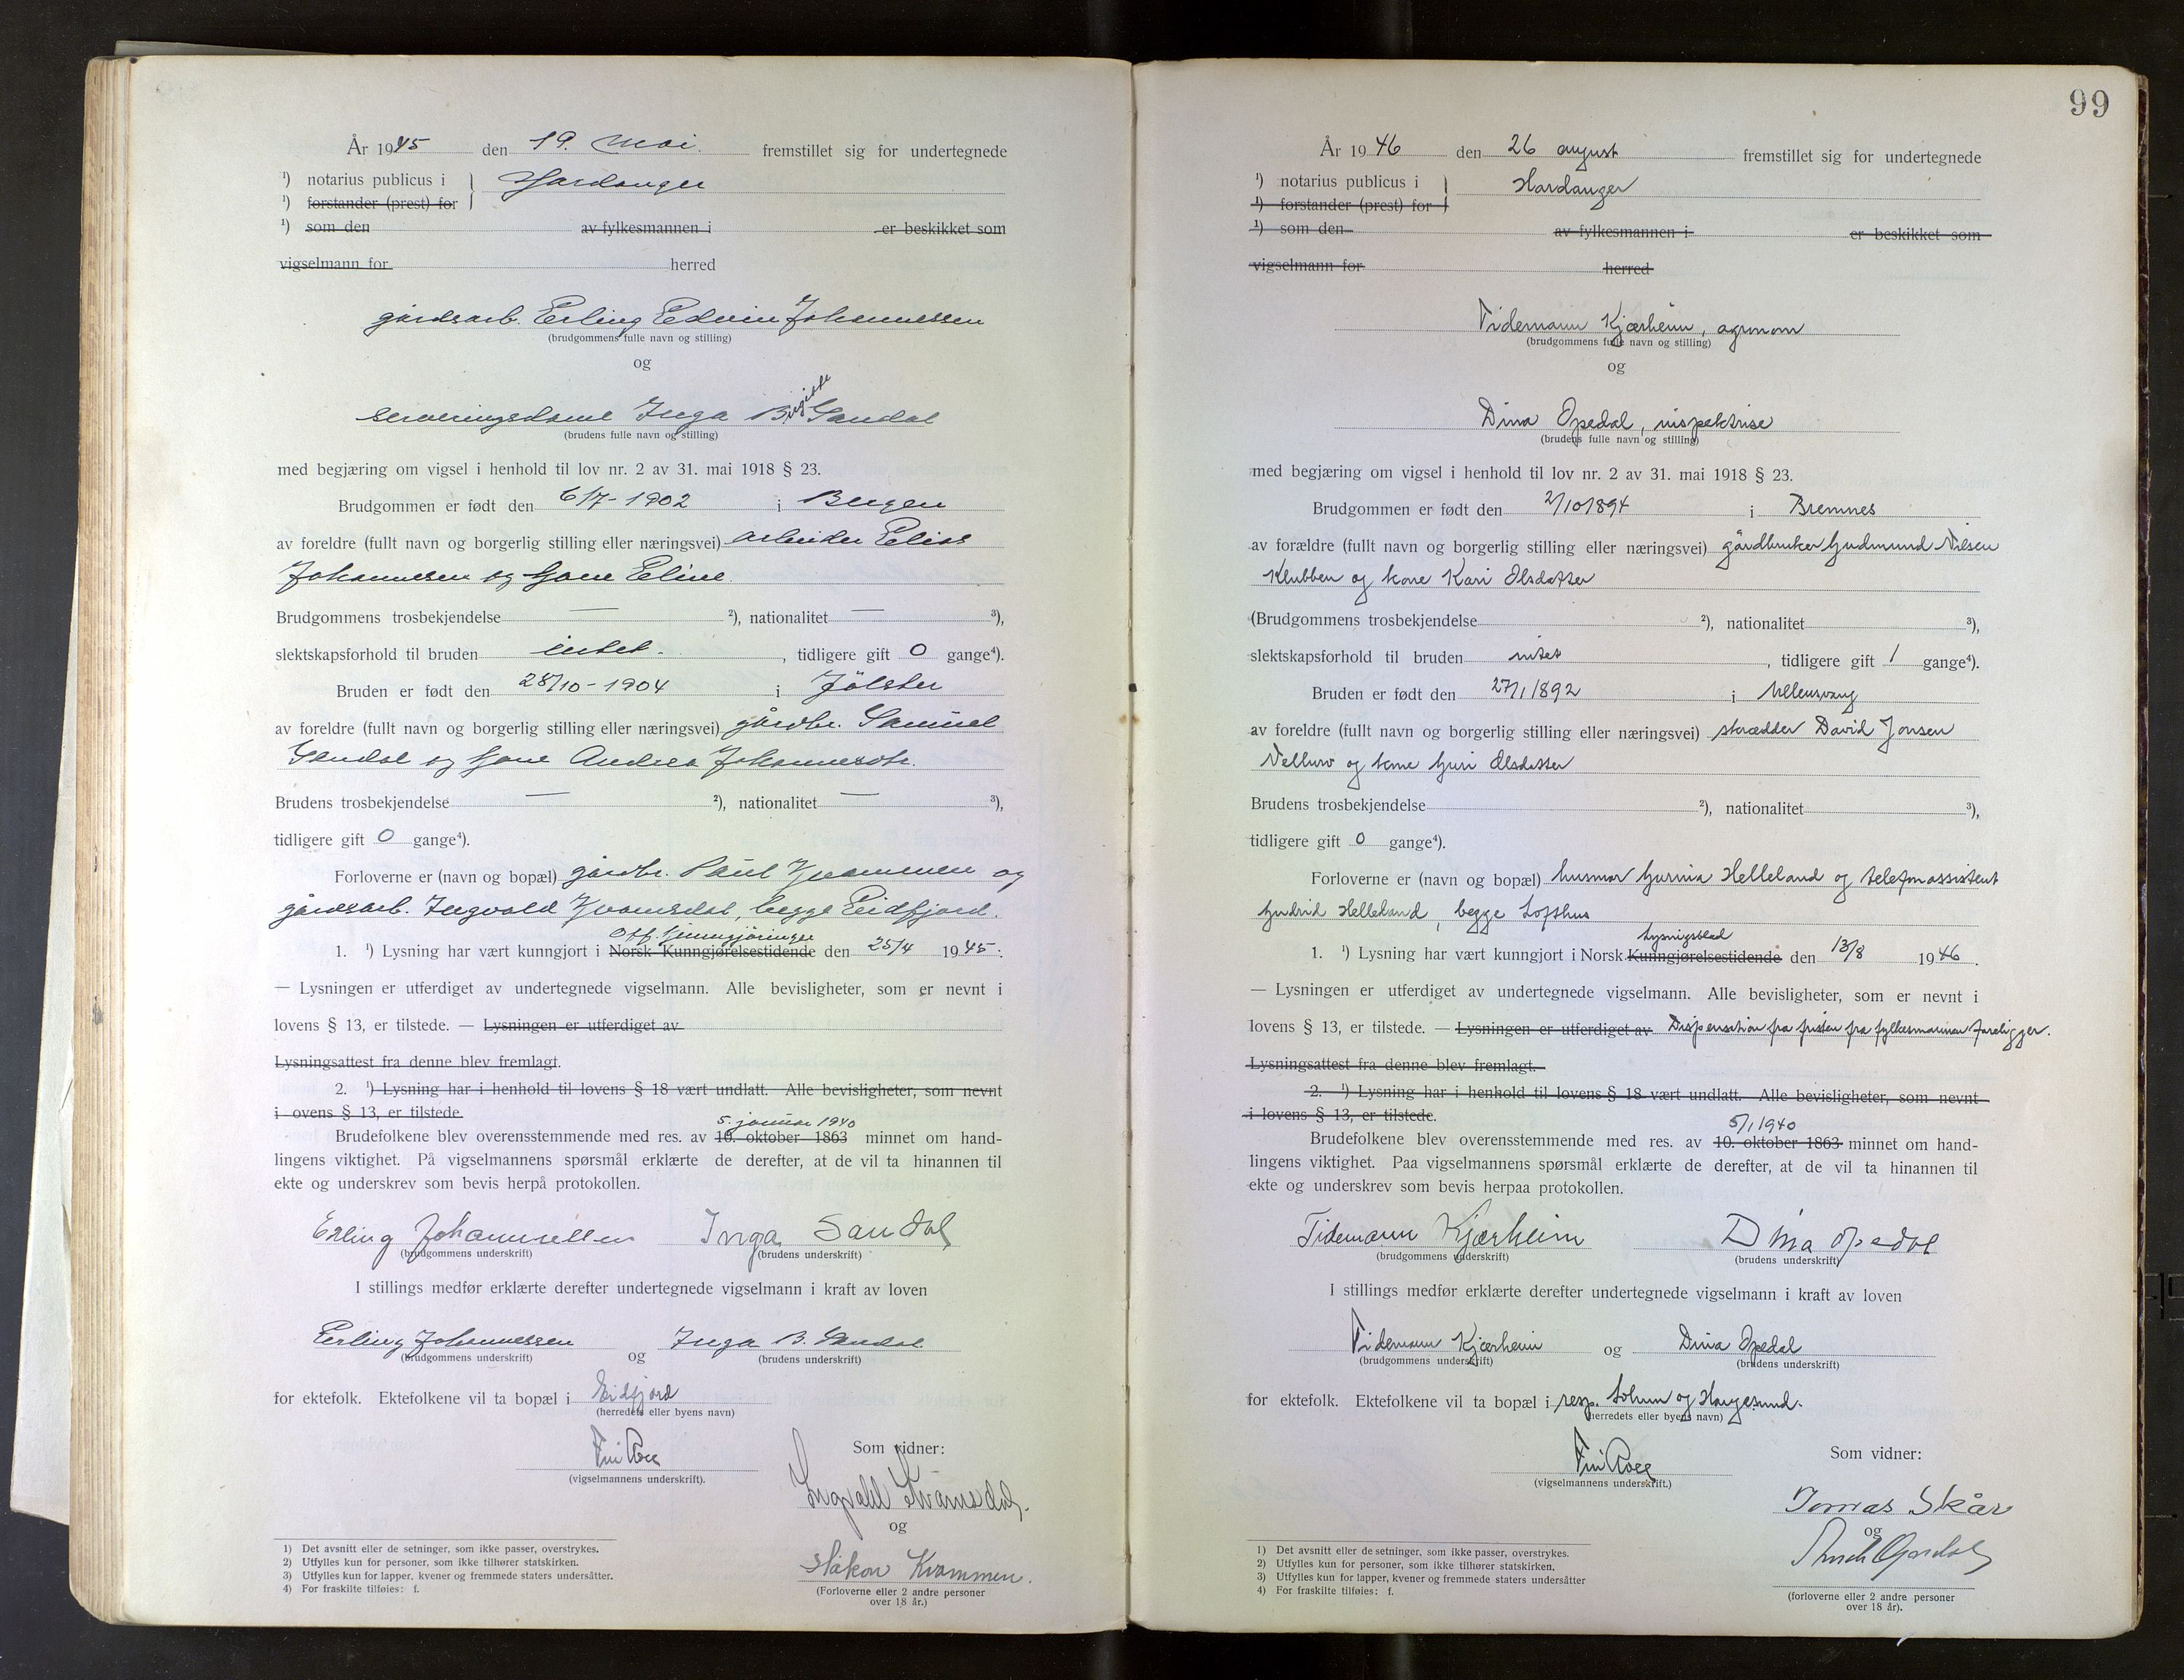 År 1945 den 19. Mai. fremstillet sig for undertegnede
¹) notarius publicus i } Hardanger
¹) forstander (prest) for
¹) som den av fylkesmannen i er beskikket som
vigselmann for herred
gårdsarb. Erling Edvin Johannessen
(brudgommens fulle navn og stilling)
og
serveringsdame Inga Birgitte Sandal
(brudens fulle navn og stilling)
med begjæring om vigsel i henhold til lov nr. 2 av 31. mai 1918 § 23.
Brudgommen er født den 6/7-1902 i Bergen
av foreldre (fullt navn og borgerlig stilling eller næringsvei) arbeider Elias
Johannesen og hane Eline
Brudgommens trosbekjendelse — ²), nationalitet — ³),
slektskapsforhold til bruden intet. , tidligere gift 0 gange⁴).
Bruden er født den 28/10-1904 i Jölster
av foreldre (fullt navn og borgerlig stilling eller næringsvei) gårdbr. Samuel
Sandal og hane Andrea Johannesdtr.
Brudens trosbekjendelse — ²), nationalitet — ³),
tidligere gift 0 gange⁴).
Forloverne er (navn og bopæl) gårdbr. Paul Kvammen og
gårdsarb. Ingvald Kvamsdal, begge Eidfjord.
Off. kunngjøringer
1. ¹) Lysning har vært kunngjort i Norsk Kunngjørelsestidende den 25/4 1945.
— Lysningen er utferdiget av undertegnede vigselmann. Alle bevisligheter, som er nevnt i
lovens § 13, er tilstede. — Lysningen er utferdiget av
Lysningsattest fra denne blev fremlagt.
2. ¹) Lysning har i henhold til lovens § 18 vært undlatt. Alle bevisligheter, som nevnt
i ovens § 13, er tilstede
5. januar 1940
Brudefolkene blev overensstemmende med res. av 10. oktober 1863 minnet om hand-
lingens viktighet. På vigselmannens spørsmål erklærte de derefter, at de vil ta hinannen til
ekte og underskrev som bevis herpå protokollen.
Erling Johannessen Inga Sandal
(brudgommens underskrift) (brudens underskrift)
I stillings medfør erklærte derefter undertegnede vigselmann i kraft av loven
Erling Johannessen og Inga B. Sandal
(brudgommens underskrift) (brudens underskrift)
for ektefolk. Ektefolkene vil ta bopæl i Eidfjord
(herredets eller byens navn)
Som vidner:
(vigselmannens underskrift).
Ingvald Kvamsdal.
og
Håkon Kvammen.
(Forloverne eller 2 andre personer
over 18 år.)
1) Det avsnitt eller de setninger, som ikke passer, overstrykes.
2) Utfylles kun for personer, som ikke tilhører statskirken.
3) Utfylles kun for lapper, kvener og fremmede staters undersåtter.
4) For fraskilte tilføies: f.
99
År 1946 den 26 august fremstillet sig for undertegnede
¹) notarius publicus i } Hardanger
¹) forstander (prest) for
¹) som den av fylkesmannen i er beskikket som
vigselmann for herred
Tidemann Kjærheim, agronom
(brudgommens fulle navn og stilling)
og
Dina Opedal, inspektrise
(brudens fulle navn og stilling)
med begjæring om vigsel i henhold til lov nr. 2 av 31. mai 1918 § 23.
Brudgommen er født den 2/10 1894 i Bremnes
av forældre (fullt navn og borgerlig stilling eller næringsvei) gårdbruker Gudmund Nilsen
Klubben og kone Kari Olsdatter
(Brudgommens trosbekjendelse ²), nationalitet ³),
slektskapsforhold til bruden intet , tidligere gift 1 gange⁴).
Bruden er født den 27/1 1892 i Ullensvang
av foreldre (fullt navn og borgerlig stilling eller næringsvei) skrædder David Jonsen
og kone Guri Olsdatter
Brudens trosbekjendelse ²), nationalitet ³),
tidligere gift 0 gange⁴).
Forloverne er (navn og bopæl) husmor Gurina Helleland og telefonassistent
Gudrid Helleland, begge Lofthus
Lysningsblad
1. ¹) Lysning har vært kunngjort i Norsk Kunngjørelsestidende den 13/8 1946.
— Lysningen er utferdiget av undertegnede vigselmann. Alle bevisligheter, som er nevnt i
lovens § 13, er tilstede. — Lysningen er utferdiget av Dispensation fra fristen fra fylkesmannen foreligger.
Lysningsattest fra denne blev fremlagt.
2. ¹) Lysning har i henhold til lovens § 18 vært undlatt. Alle bevisligheter, som nevnt
i lovens § 13, er tilstede.
5/1 1940
Brudefolkene blev overensstemmende med res. av 10. oktober 1863 minnet om hand-
lingens viktighet. Paa vigselmannens spørsmål erklærte de derefter, at de vil ta hinannen til
ekte og underskrev som bevis herpaa protokollen.
Tidemann Kjærheim Dina Opedal
(brudgommens underskrift) (brudens underskrift)
I stillings medfør erklærte derefter undertegnede vigselmann i kraft av loven
Tidemann Kjærheim og Dina Opedal
(brudgommens underskrift) (brudens underskrift)
for ektefolk. Ektefolkene vil ta bopæl i resp. og Haugesund.
herredets eller byens navn)
Som vidner:
(vigselmannens underskrift.)
Tomas Skår
og
(forloverne eller 2 andre personer
over 18 år).
1) Det avsnitt eller de setninger, som ikke passer, overstrykes.
2) Utfylles kun for personer, som ikke tilhører statskirken.
3) Utfylles kun for lapper, kvener og fremmede staters undersåtter
4) For fraskilte tilføies: f.